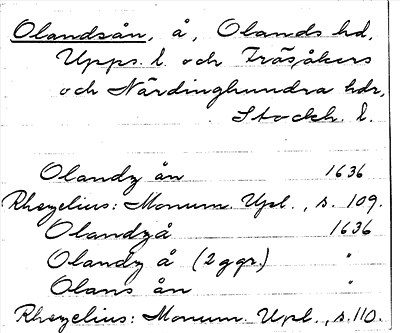 Olandsån, å, Olands hd,
Upps. l. och Frösåkers
och Närdinghundra hdr,
Stockh. l.
Olandz ån 1636
Rhezelius: Monum. Upl., s. 109.
Olandzå 1636
Olandz å (2 ggr.) "
Olans ån "
Rhezelius: Monum. Upl., s. 110.